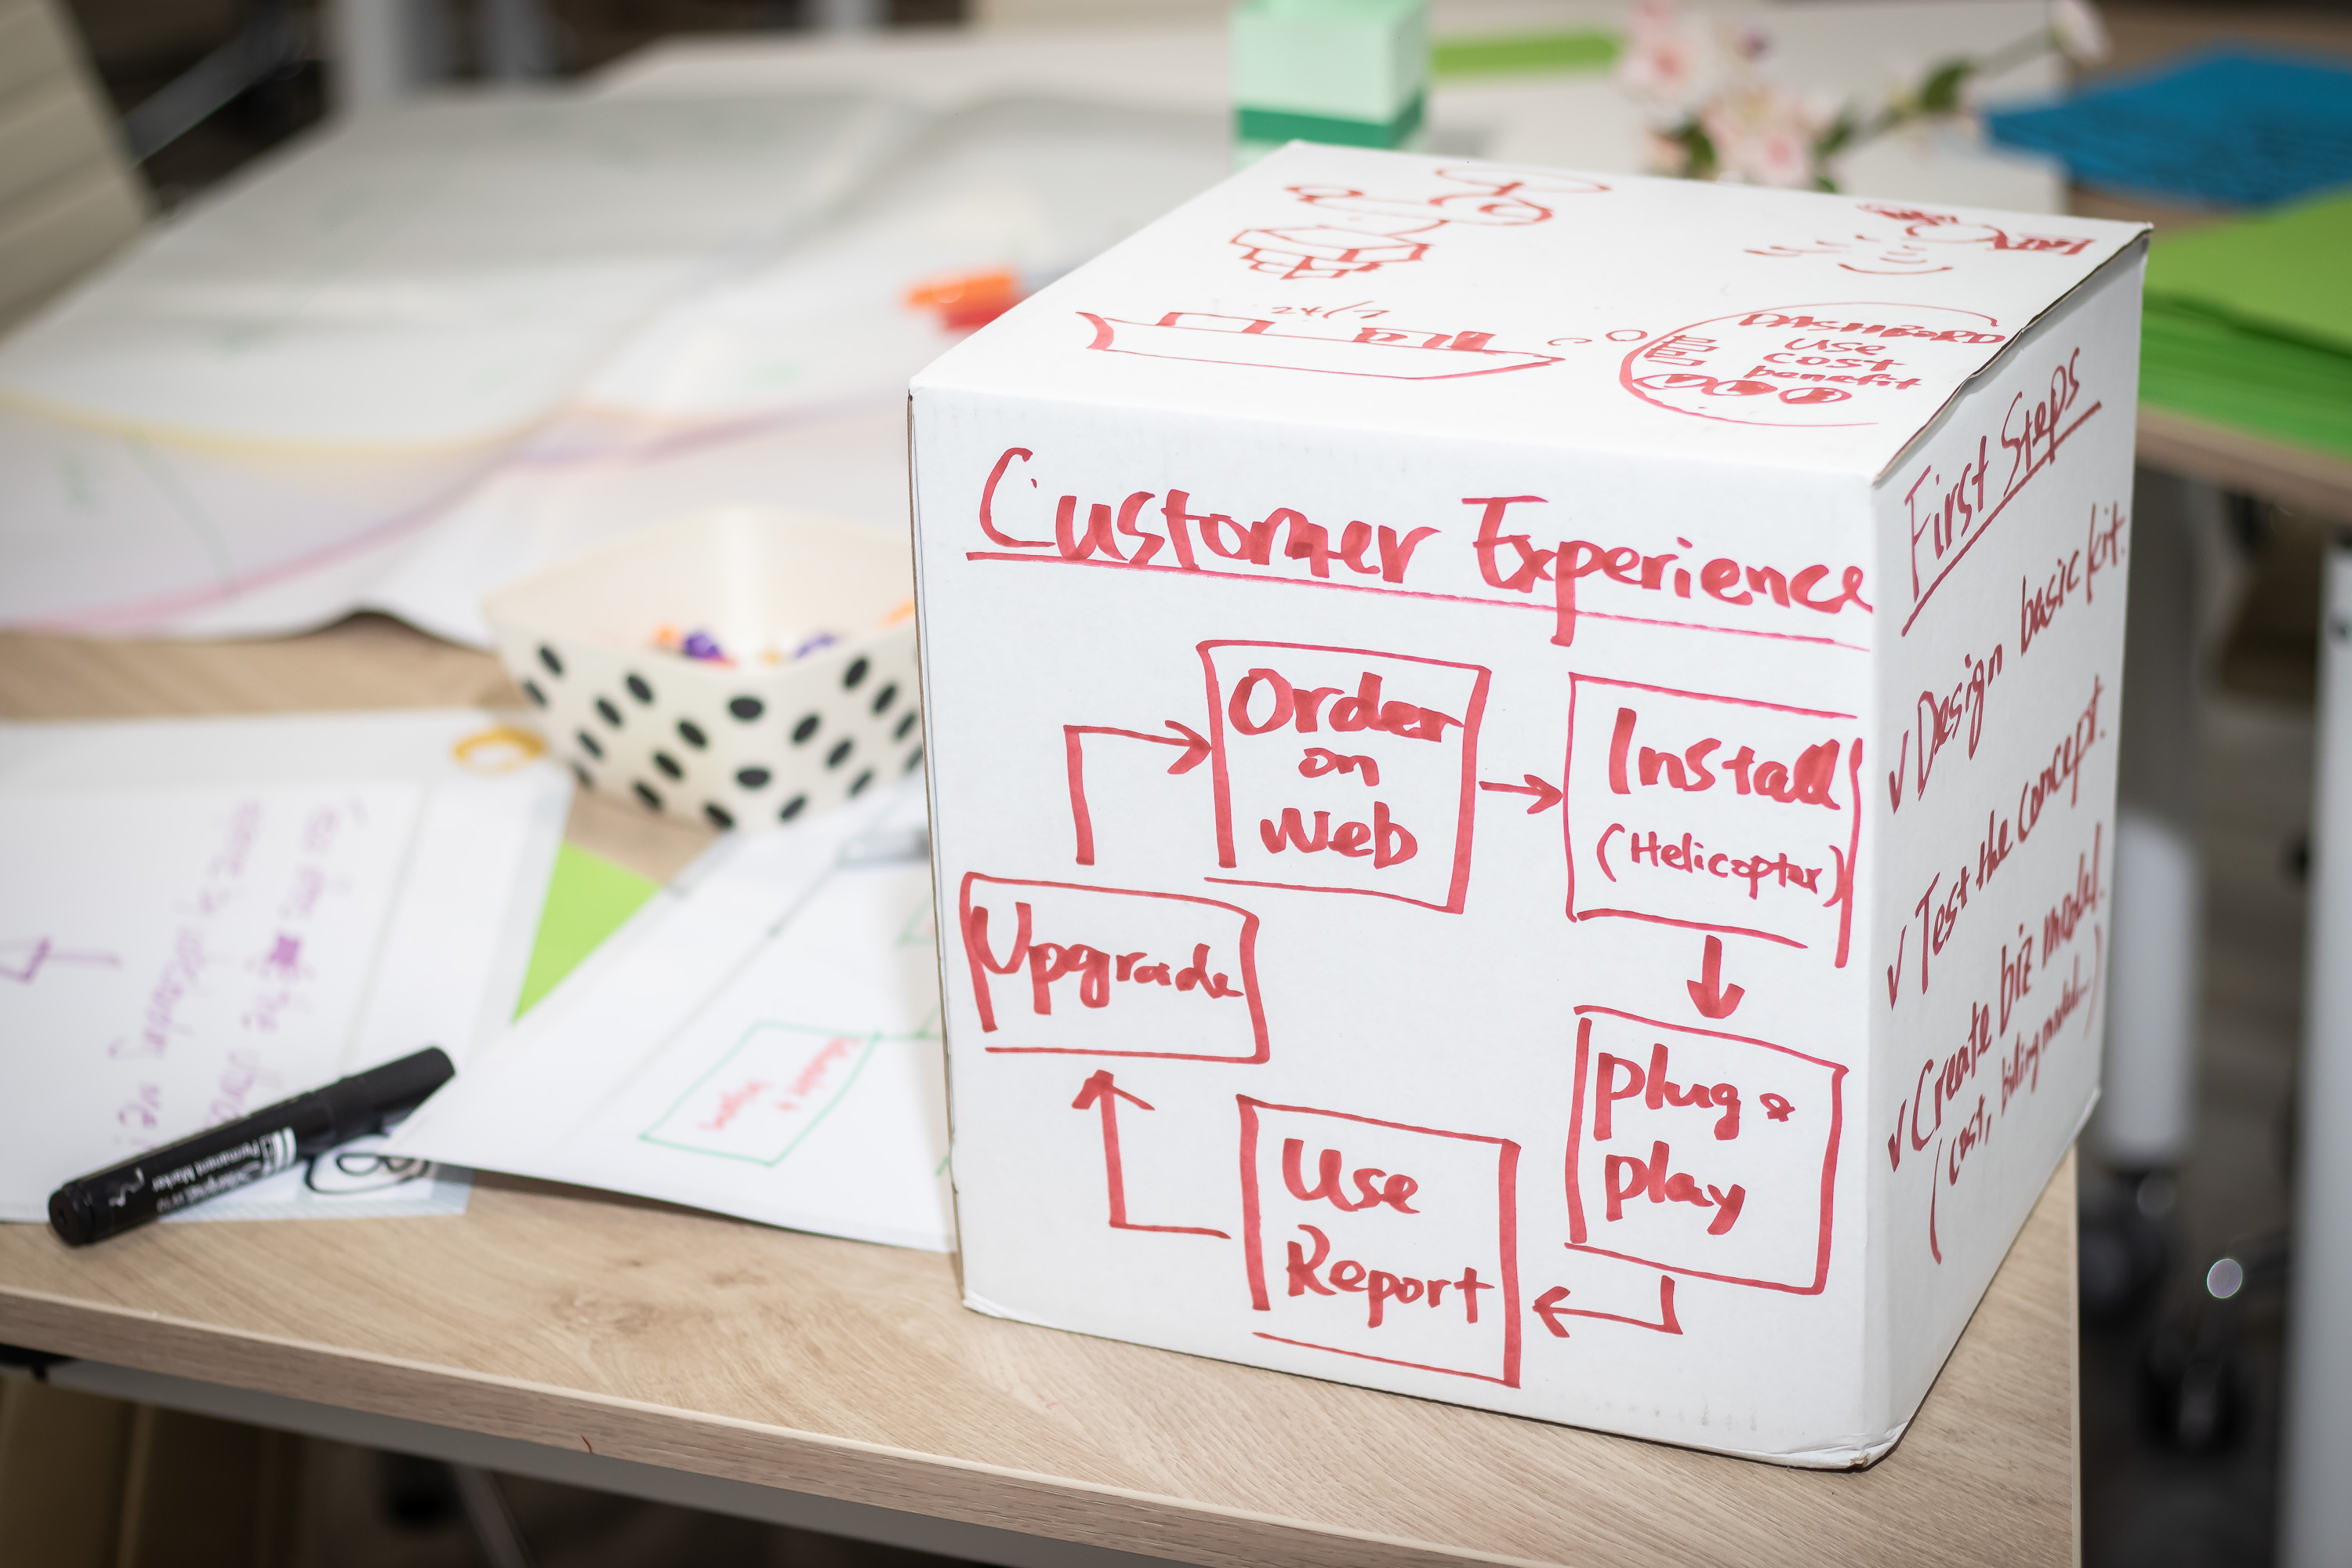 24/7
DASHBOARD
USE
COST
benefit
Customer Experience
Order
on
Web
Install
(Helicopter)
Upgrade
Plug &
Play
Use
Report
First Steps
✓ Design basic kit.
✓ Test the concept.
✓ Create biz model.
(cost, billing model...)
Permanent Marker